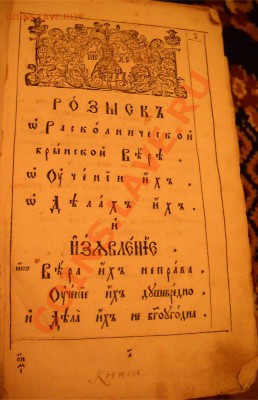 РОЗЫСКЪ
ѡ Раскольнической
брынской Вѣрѣ .
ѡ Оученїи ихъ .
ѡ Дѣлахъ ихъ .
И
ИЗЯВЛЕНЇЕ
Вѣра ихъ неправа .
Оученїе ихъ душевредно
и Дѣла ихъ не бгоугодна
Книга